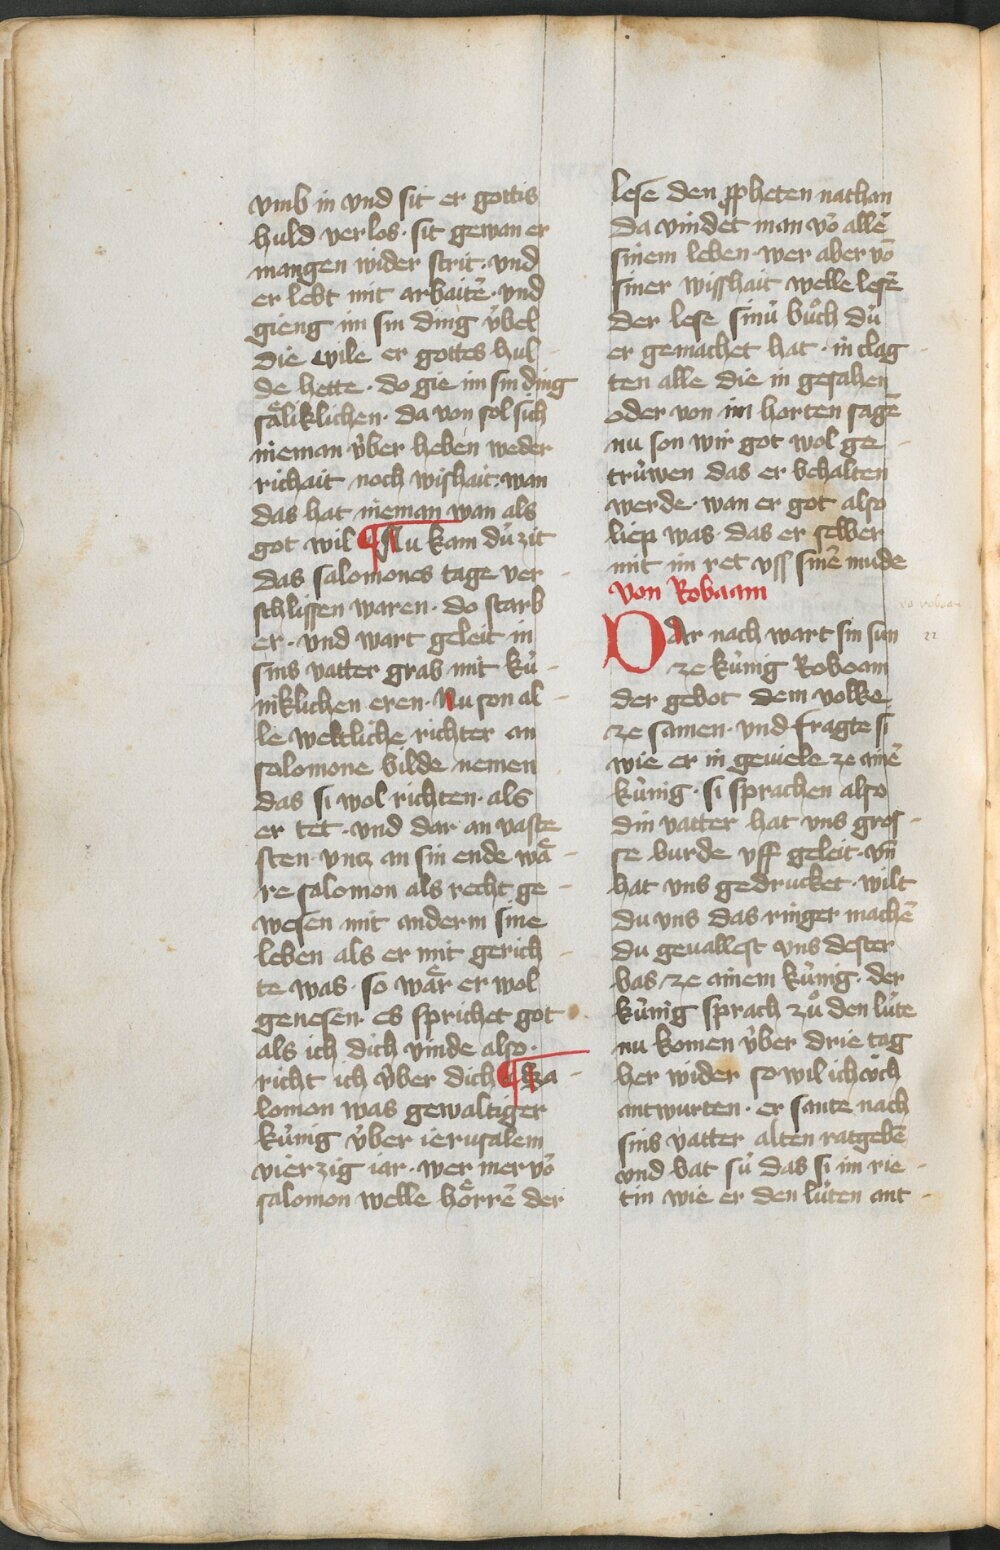 vmb in vnd sit er gottis
huld verlos · sit gewan er
mangen wider strit · vnd
er lebt mit arbaitē · vnd
gieng im sin ding v̊bel
die wile er gottes hul-
de hette · do gie im sin ding
säliklichen · da von sol sich
nieman v̊ber heben weder
richait noch wishait · wan
das hat nieman wan als
got wil ¶ Nu kam dů zit
das salomones tage ver-
schlissen waren · do starb
er · vnd wart geleit in
sins vatter grab mit ků-
niklichen eren · Nu son al-
le weltliche richter an
salomone bilde nemen
das si wol richten · als
er tet · vnd dar an vaste
sten · vntz an sin ende wä-
re salomon als recht ge-
wesen mit anderm sine
leben als er mit gerich-
te was · so wär er wol
genesen · es sprichet got
als ich dich vinde also ·
richt ich v̊ber dich ¶ Sa-
lomon was gewaltiger
kůnig v̊ber ierusalem
vierzig iar · wer mer vō
salomon welle hörrē der
lese den ꝓpheten nathan
da vindet man vō allē
sinem leben · wer aber vō
siner wisshait welle lesē
der lese sinů bůch dů
er gemachet hat · in clag-
ten alle die in gesahen
oder von im horten sagē
nu son wir got wol ge-
trůwen das er behalten
werde · wan er got also
liep was · das er selber
mit im ret vss sinē mude
von Roboam
Dar nach wart sin sun
ze kůnig Roboam
der gebot dem volke
ze samen · vnd fragte si
wie er in geuiele ze ainē
kůnig · si sprachen also
din vatter hat vns gros-
se burde vff geleit · vn̄
hat vns gedrucket · wilt
du vns das ringer machē
du geuallest vns dester
bas ze ainem kůnig · der
kůnig sprach zů den lůte
nu komen v̊ber drie tag
her wider so wil ich ůch
antwurten · er sante nach
sins vatter alten ratgebē
vnd bat sů das si im rie-
tin wie er den lůten ant-
22